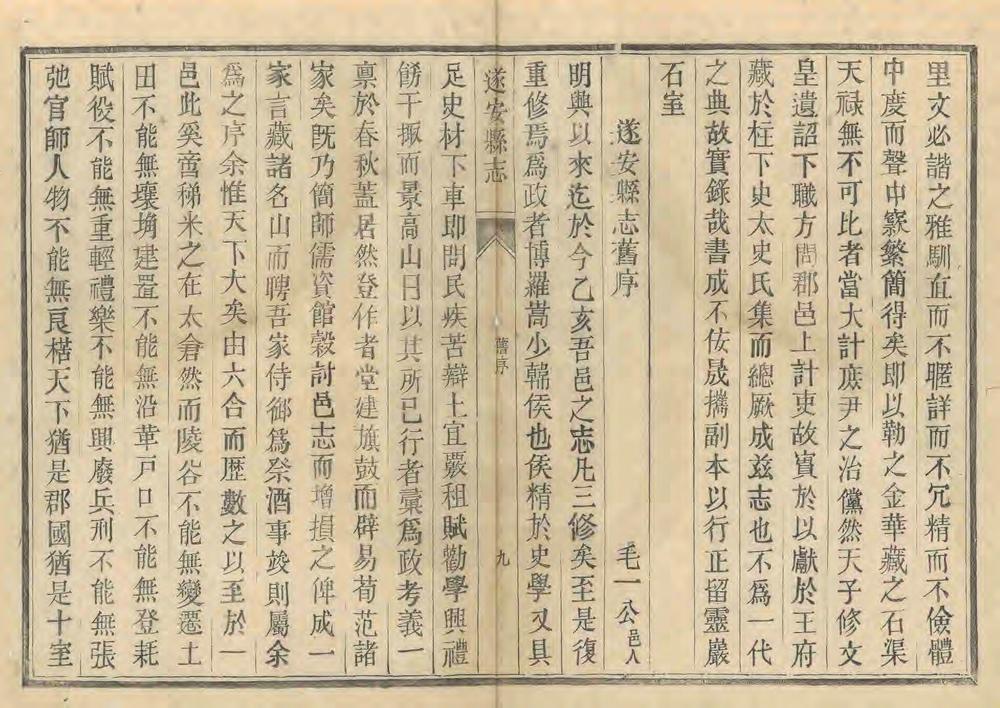 里文必諧之雅馴直而不䁥詳而不冗精而不儉體
中度而聲中窾繁簡得矣即以勒之金華藏之石渠
天祿無不可比者當大計庶尹之治儻然天子修文
皇遺詔下職方問郡邑上計吏故實於以獻於王府
藏於柱下史太史氏集而總厥成兹志也不爲一代
之典故實錄哉書成不佞晟攜副本以行正留靈巖
石室
遂安縣志舊序 毛一公邑人
明興以來迄於今乙亥吾邑之志凡三修矣至是復
重修焉爲政者博羅嵩少韓侯也侯精於史學又具
遂安縣志 舊序 九
足史材下車即問民疾苦辯土宜覈租賦勸學興禮
餝干掫而景高山日以其所已行者彚爲政考義一
禀於春秋蓋居然登作者堂建旗鼓而辟易荀范諸
家矣旣乃簡師儒資館穀討邑志而增損之俾成一
家言藏諸名山而聘吾家侍御爲祭酒事竣則屬余
爲之序余惟天下大矣由六合而歷數之以至於一
邑此奚啻稊米之在太倉然而陵谷不能無變遷土
田不能無壤埆建置不能無沿革戸口不能無登耗
賦役不能無重輕禮樂不能無興廢兵刑不能無張
弛官師人物不能無良楛天下猶是郡國猶是十室